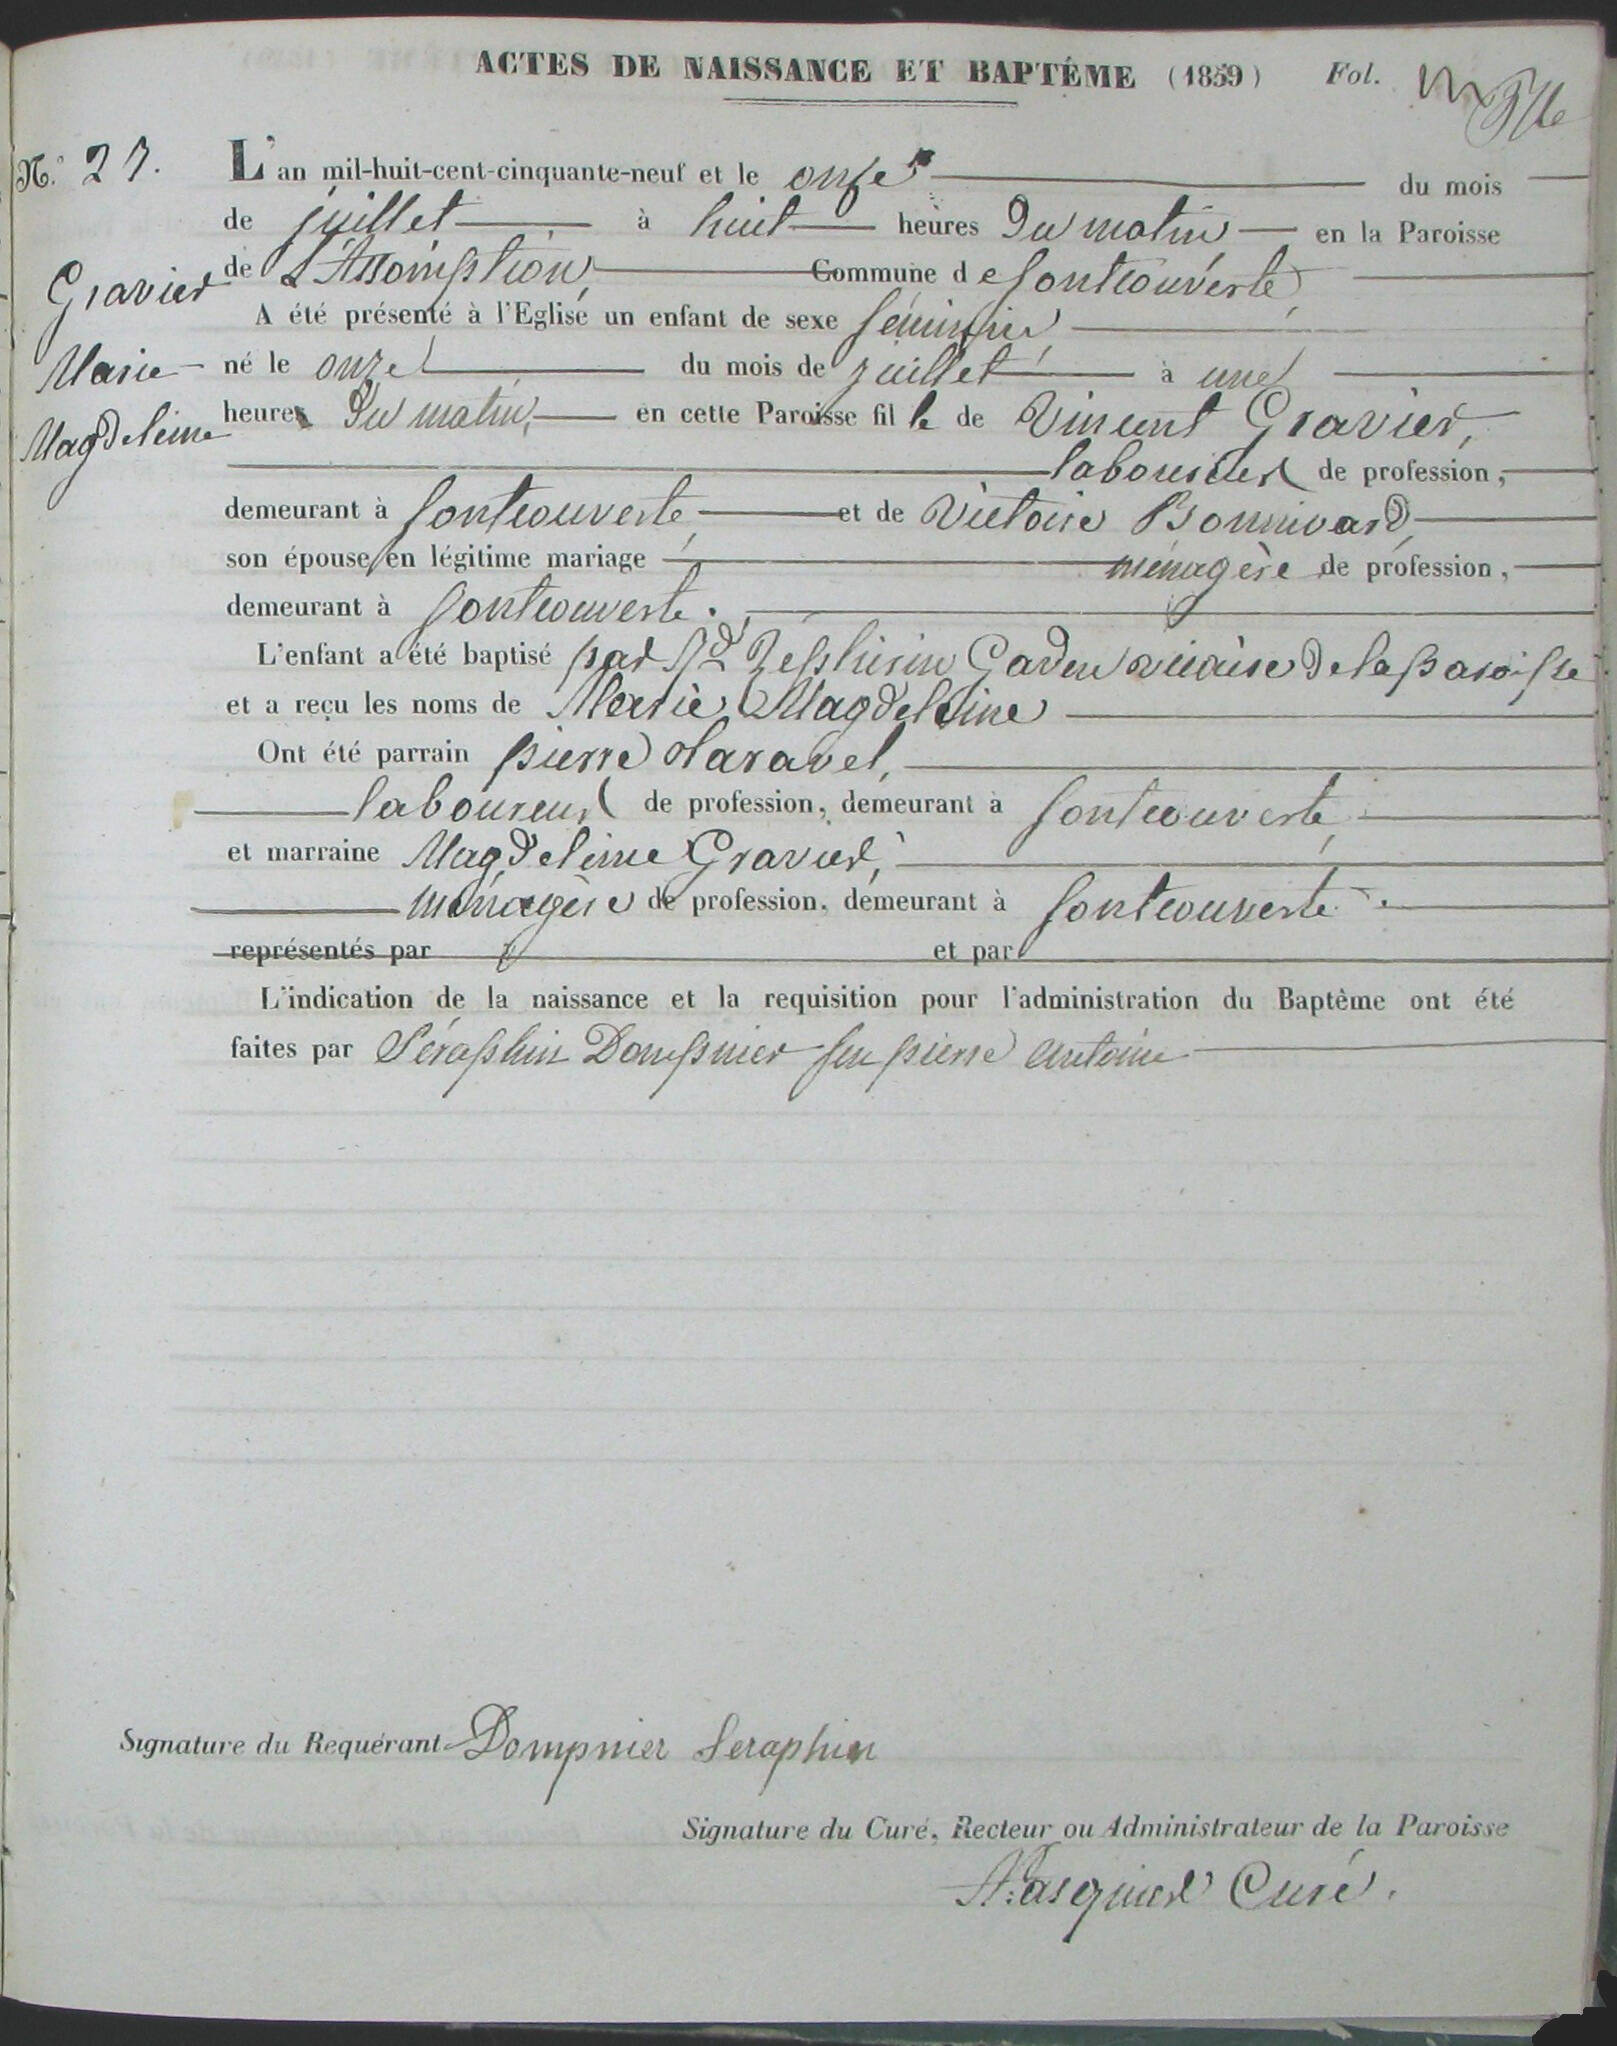 ACTES DE NAISSANCE ET BAPTÊME (1859) Fol.
N.° 27.
L'an mil-huit-cent-cinquante-neuf et le onze du mois
de juillet à huit heures du matin en la Paroisse
de L'Assomption, Commune de fontcouverte,
A été présenté à l'Eglise un enfant de sexe féminin,
né le onze du mois de juillet à une
heure du matin, en cette Paroisse fille de Vincent Gravier,
laboureur de profession,
demeurant à fontcouverte, et de Victoire Bonnivard,
son épouse en légitime mariage ménagère de profession,
demeurant à fontcouverte.
Gravier
Marie
Magdeleine
L'enfant a été baptisé par Rd Zephirin Garden vicaire de la paroisse
et a reçu les noms de Marie Magdeleine
Ont été parrain pierre taravel,
laboureur de profession, demeurant à fontcouverte,
et marraine Magdeleine Gravier,
ménagère de profession, demeurant à fontcouverte.
représentés par et par
L'indication de la naissance et la requisition pour l'administration du Baptême ont été
faites par Séraphin Dompnier feu pierre antoine
Signature du Requérant Dompnier Seraphin
Signature du Curé, Recteur ou Administrateur de la Paroisse
Pasquier Curé.